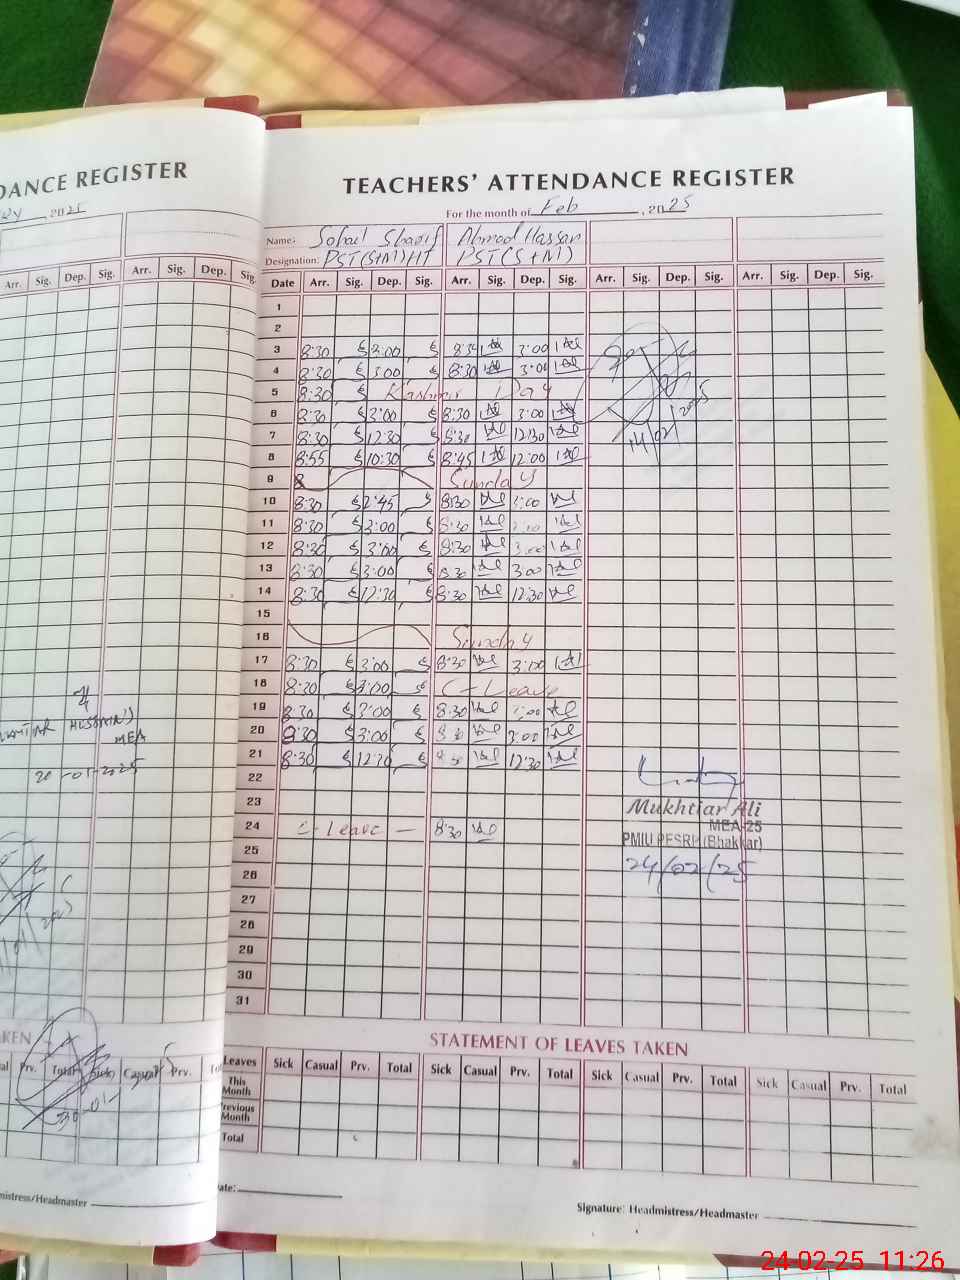 DANCE REGISTER
, 2025
Arr. Sig. Dep. Sig. Arr. Sig. Dep. Sig.
HUSSAIN)
MEA
20-01-2025
TAKEN
Prv. Total Sick Casual Prv.
30-01-
mistress/Headmaster
TEACHERS' ATTENDANCE REGISTER
For the month of Feb, 2025
Name: Sohail Sharif Ahmad Hassan
Designation: PST(S+M)HT PST(S+M)
Date Arr. Sig. Dep. Sig. Arr. Sig. Dep. Sig. Arr. Sig. Dep. Sig. Arr. Sig. Dep. Sig.
1
2
3 8:30 3:00 8:30 3:00
4 8:30 3:00 8:30 3:00
5 8:30 Kashmir Day
6 8:30 3:00 8:30 3:00
7 8:30 12:30 8:30 12:30
8 8:55 10:30 8:45 12:00
9 Sunday
10 8:30 2:45 8:30 3:00
11 8:30 3:00 8:30
12 8:30 3:00 8:30 3:00
13 8:30 3:00 8:30 3:00
14 8:30 12:30 8:30 12:30
15
16 Sunday
17 8:30 3:00 8:30 3:00
18 8:30 3:00 C-Leave
19 8:30 3:00 8:30 3:00
20 8:30 3:00 3:00
21 8:30 12:30 12:30
22
23
24 C-Leave — 8:30
25
26
27
28
29
30
31
14/02/2025
Mukhtiar Ali
MEA-25
PMIU PESRP (Bhakkar)
24/02/25
STATEMENT OF LEAVES TAKEN
Leaves Sick Casual Prv. Total Sick Casual Prv. Total Sick Casual Prv. Total Sick Casual Prv. Total
This Month
Previous Month
Total
Date:
Signature: Headmistress/Headmaster
24-02-25 11:26